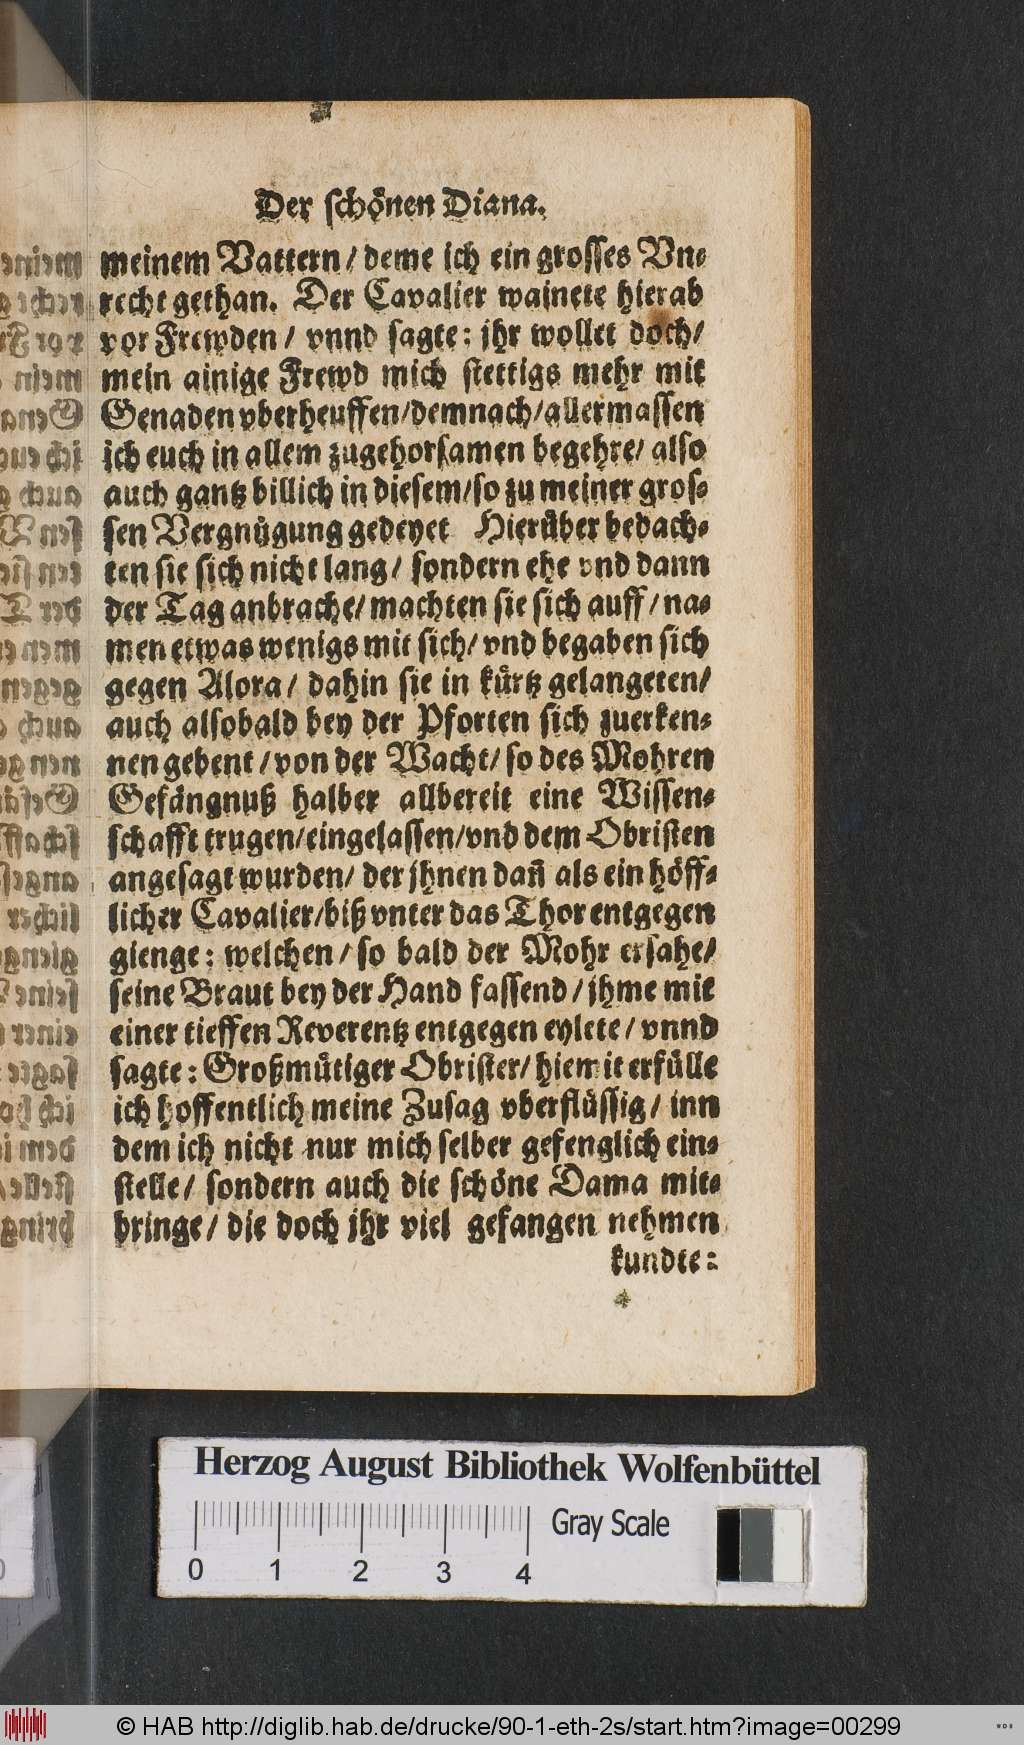 Der schönen Diana.
meinem Vattern / deme ich ein grosses Vn-
recht gethan. Der Cavalier wainete hierab
vor Frewden / vnnd sagte: ihr wollet doch /
mein ainige Frewd mich stettigs mehr mit
Genaden vberheuffen / demnach / allermassen
ich euch in allem zugehorsamen begehre / also
auch gantz billich in diesem / so zu meiner gros-
sen Vergnügung gedeyet Hierüber bedach-
ten sie sich nicht lang / sondern ehe vnd dann
der Tag anbrache / machten sie sich auff / na-
men etwas wenigs mit sich / vnd begaben sich
gegen Alora / dahin sie in kürtz gelangeten /
auch alsobald bey der Pforten sich zuerken-
nen gebent / von der Wacht / so des Mohren
Gefängnuß halber allbereit eine Wissen-
schafft trugen / eingelassen / vnd dem Obristen
angesagt wurden / der jhnen dañ als ein höff-
licher Cavalier / biß vnter das Thor entgegen
gienge: welchen / so bald der Mohr ersahe /
seine Braut bey der Hand fassend / jhme mit
einer tieffen Reverentz entgegen eylete / vnnd
sagte: Großmütiger Obrister / hiemit erfülle
ich hoffentlich meine Zusag vberflüssig / inn
dem ich nicht nur mich selber gefenglich ein-
stelle / sondern auch die schöne Dama mit-
bringe / die doch jhr viel gefangen nehmen
kundte:
Herzog August Bibliothek Wolfenbüttel
0 1 2 3 4 Gray Scale
© HAB http://diglib.hab.de/drucke/90-1-eth-2s/start.htm?image=00299